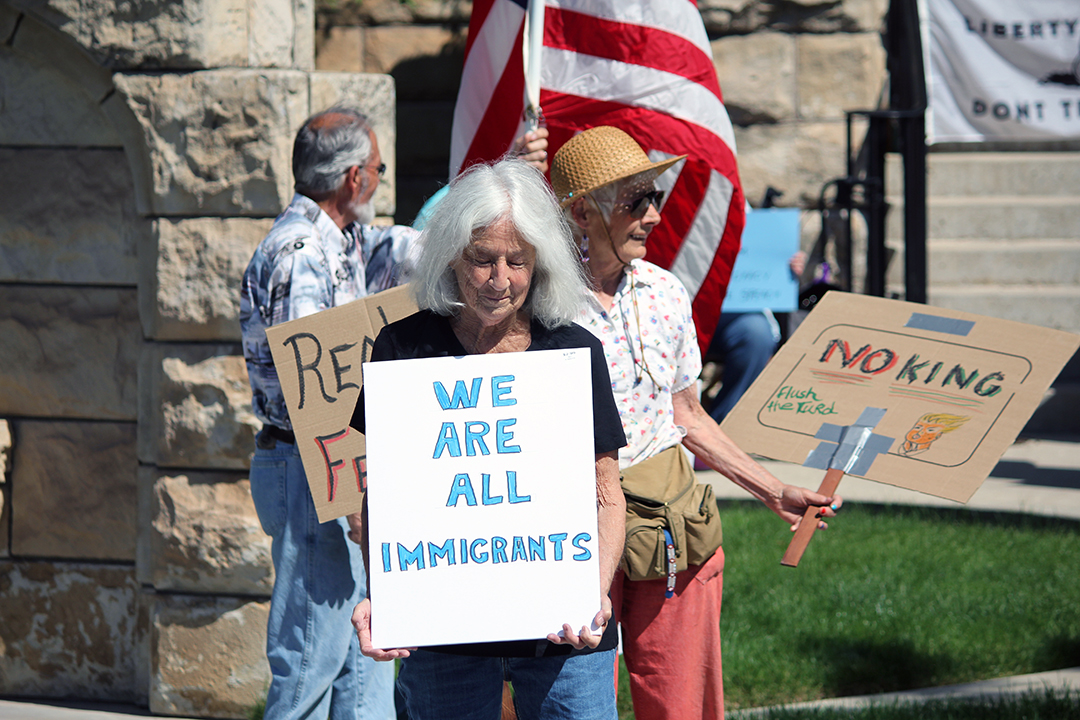 LIBERTY
DONT
WE
ARE
ALL
IMMIGRANTS
NO KING
flush
the Turd